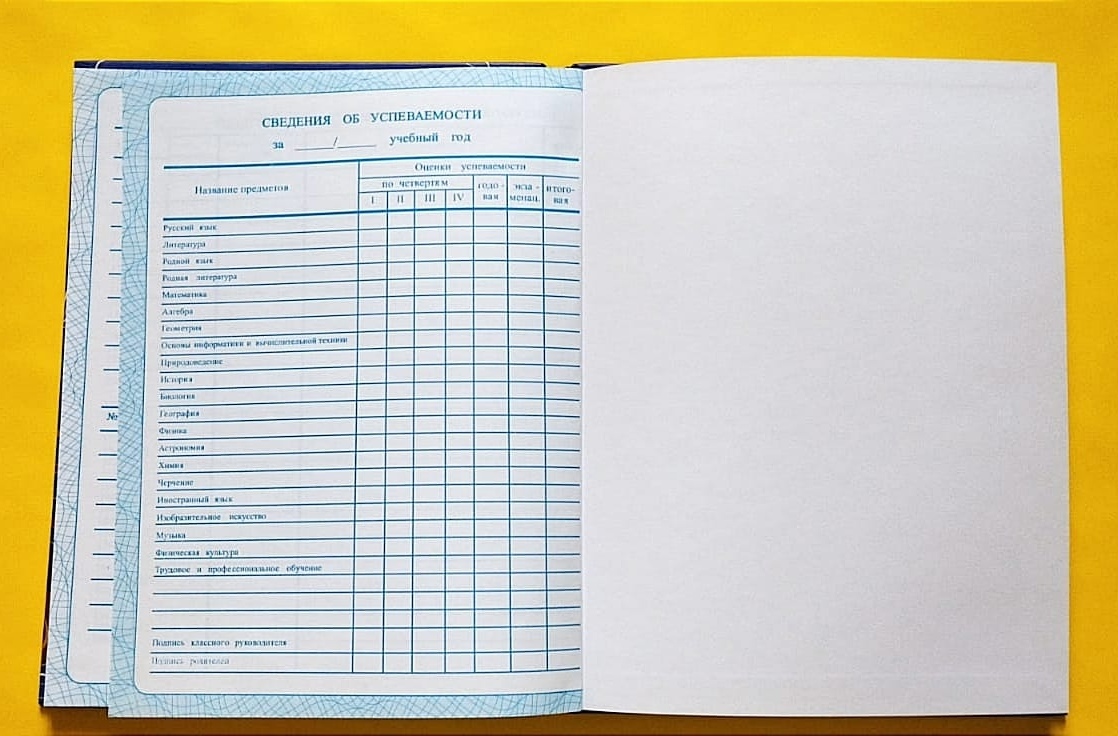 СВЕДЕНИЯ ОБ УСПЕВАЕМОСТИ
за ______/______ учебный год
Название предметов
Оценки успеваемости
по четвертям
I II III IV
годо-
вая
экза-
менац.
итого-
вая
Русский язык
Литература
Родной язык
Родная литература
Математика
Алгебра
Геометрия
Основы информатики и вычислительной техники
Природоведение
История
Биология
География
Физика
Астрономия
Химия
Черчение
Иностранный язык
Изобразительное искусство
Музыка
Физическая культура
Трудовое и профессиональное обучение
Подпись классного руководителя
Подпись родителей
№